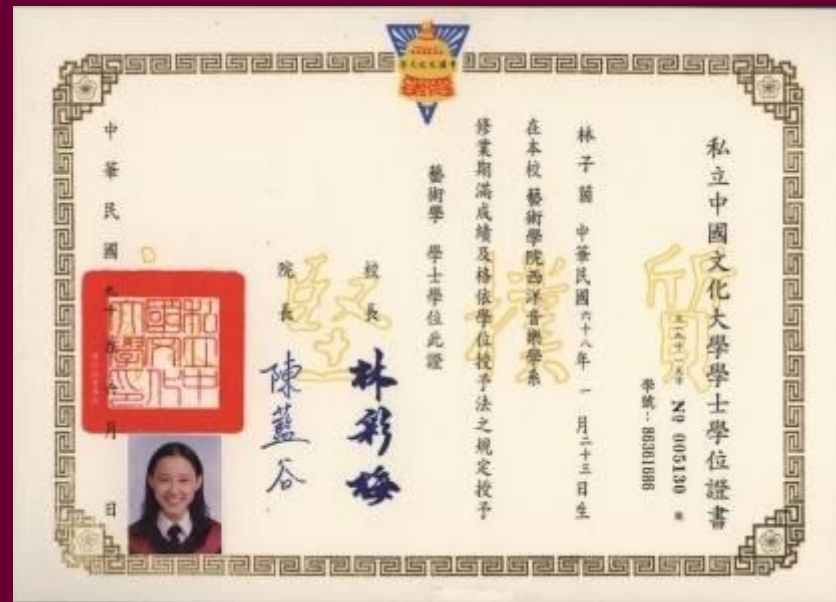 中國文化大學
私立中國文化大學學士學位證書
№ 005130 號
學號：86361686
林子茵 中華民國六十八年 一 月二十三日生
在本校 藝術學院西洋音樂學系
修業期滿成績及格依學位授予法之規定授予
藝術學 學士學位此證
校長 林彩梅
院長 陳藍谷
質樸堅
私立中國文化大學印
中華民國九十年六月 日